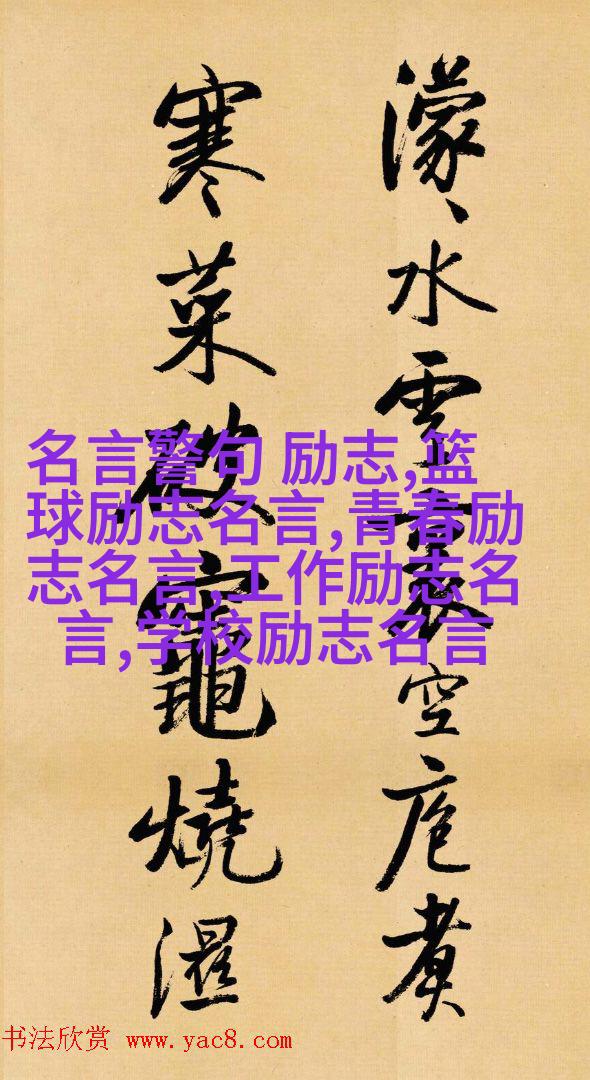 濛々水雲裏空庖煮
寒菜破竈燒濕
名言警句 励志,篮
球励志名言,青春励
志名言,工作励志名
言,学校励志名言
书法欣赏 www.yac8.com